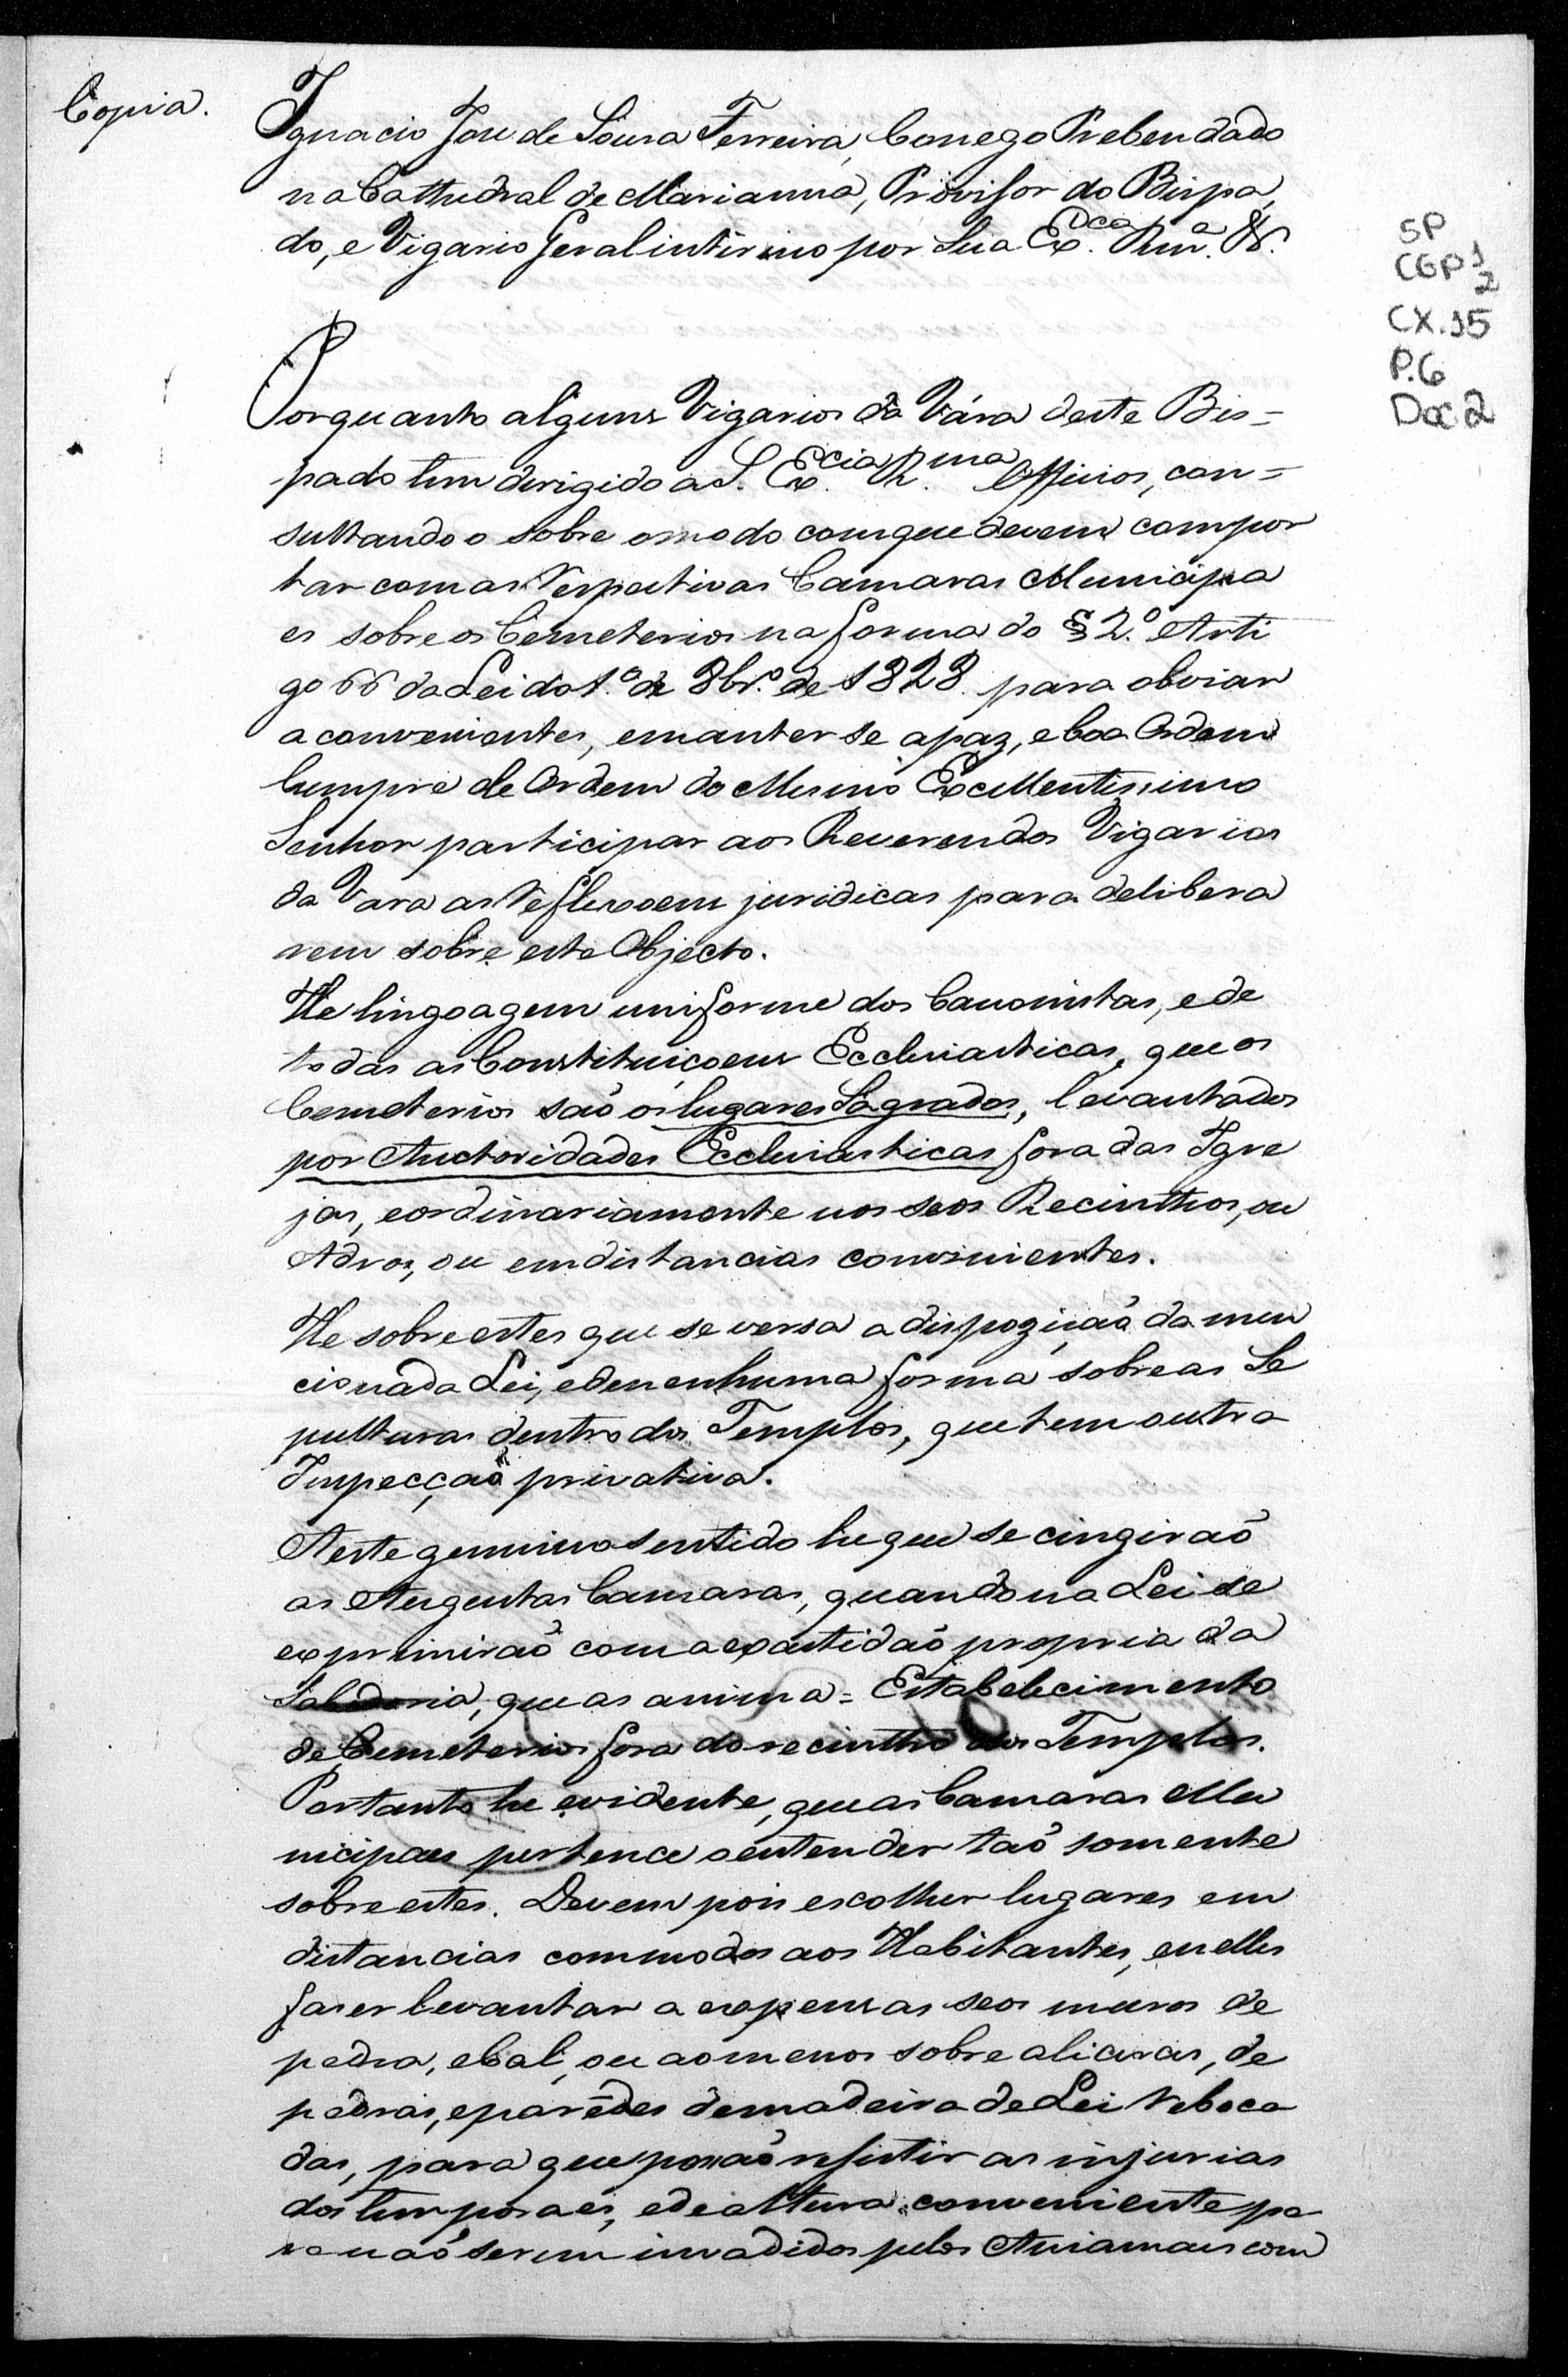 Copia.
Ignacio José de Sousa Ferreira, Conego Prebendado
na Cathedral de Marianna, Provisor do Bispa
do, e Vigario Geral interino por Sua Ex.cia Rm.a &.
SP
CGP 1
2
CX.15
P.6
Doc 2
Porquanto alguns Vigarios da Vára deste Bis=
pado tem dirigido a S. Ex.cia R.ma Officios, con=
sultando o sobre o modo com que devem compor
tar com as Respectivas Camaras Municipa
es sobre os Cemeterios na forma do § 2.º Arti
go 66 da Lei do 1.º de 8br.º de 1828 para obviar
aconvenientes, emanter se apaz, eboa Ordem
Cumpre de Ordem do Mesmo Excellentissimo
Senhor participar aos Reverendos Vigarios
da Vara as Reflexoens juridicas para delibera
rem sobre este Objecto.
He lingoagem uniforme dos Canonistas, e de
todas as Constituiçoens Ecclesiasticas, que os
Cemeterios saõ os lugares Sagrados, levantados
por Auctoridades Ecclesiasticas fora das Igre
jas, eordinariamente nos seos Recinthos, ou
Adros, ou em distancias convinientes.
He sobre estes que se versa a dispoziçaõ da men
cionada Lei, edenenhuma forma sobre as Se
pulturas dentro dos Templos, que tem outra
Inspecçaõ privativa.
Neste genuino sentido he que se cingiraõ
as Augustas Camaras, quando na Lei se
exprimiraõ com a exactidaõ propria da
Sabedoria, que as anima = Estabelecimento
de Cemeterios fora do recintho dos Templos.
Portanto he evidente, que as Camaras Mu
nicipaes pertence o entender taõ somente
sobre estes. Devem pois escolher lugares em
distancias commodas aos Habitantes, e nelles
faser levantar a expensas seos muros de
pedra, e Cal, ou ao menos sobre alicerces, de
pedras, e parêdes de madeira de Lei reboca
das, para que possaõ resistir as injurias
dos temporaes, e de altura conveniente pa
ra naõ serem invadidos pelos Aniamaes com